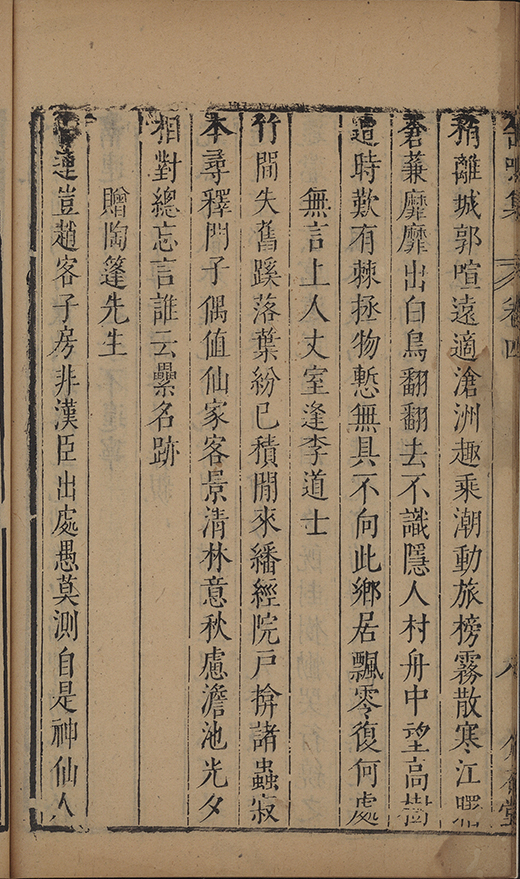 稍離城郭喧遠適滄洲趣乘潮動旅榜霧散寒江曙
蒼蒹靡靡出白鳥翻翻去不識隱人村舟中望高樹
遭時歎有棘拯物慙無具不向此鄉居飄零復何處
無言上人丈室逢李道士
竹間失舊蹊落葉紛已積閒來繙經院戶揜諸蟲寂
本尋釋門子偶值仙家客景清林意秋慮澹池光夕
相對總忘言誰云縈名跡
贈陶篷先生
連豈趙客子房非漢臣出處愚莫測自是神仙人